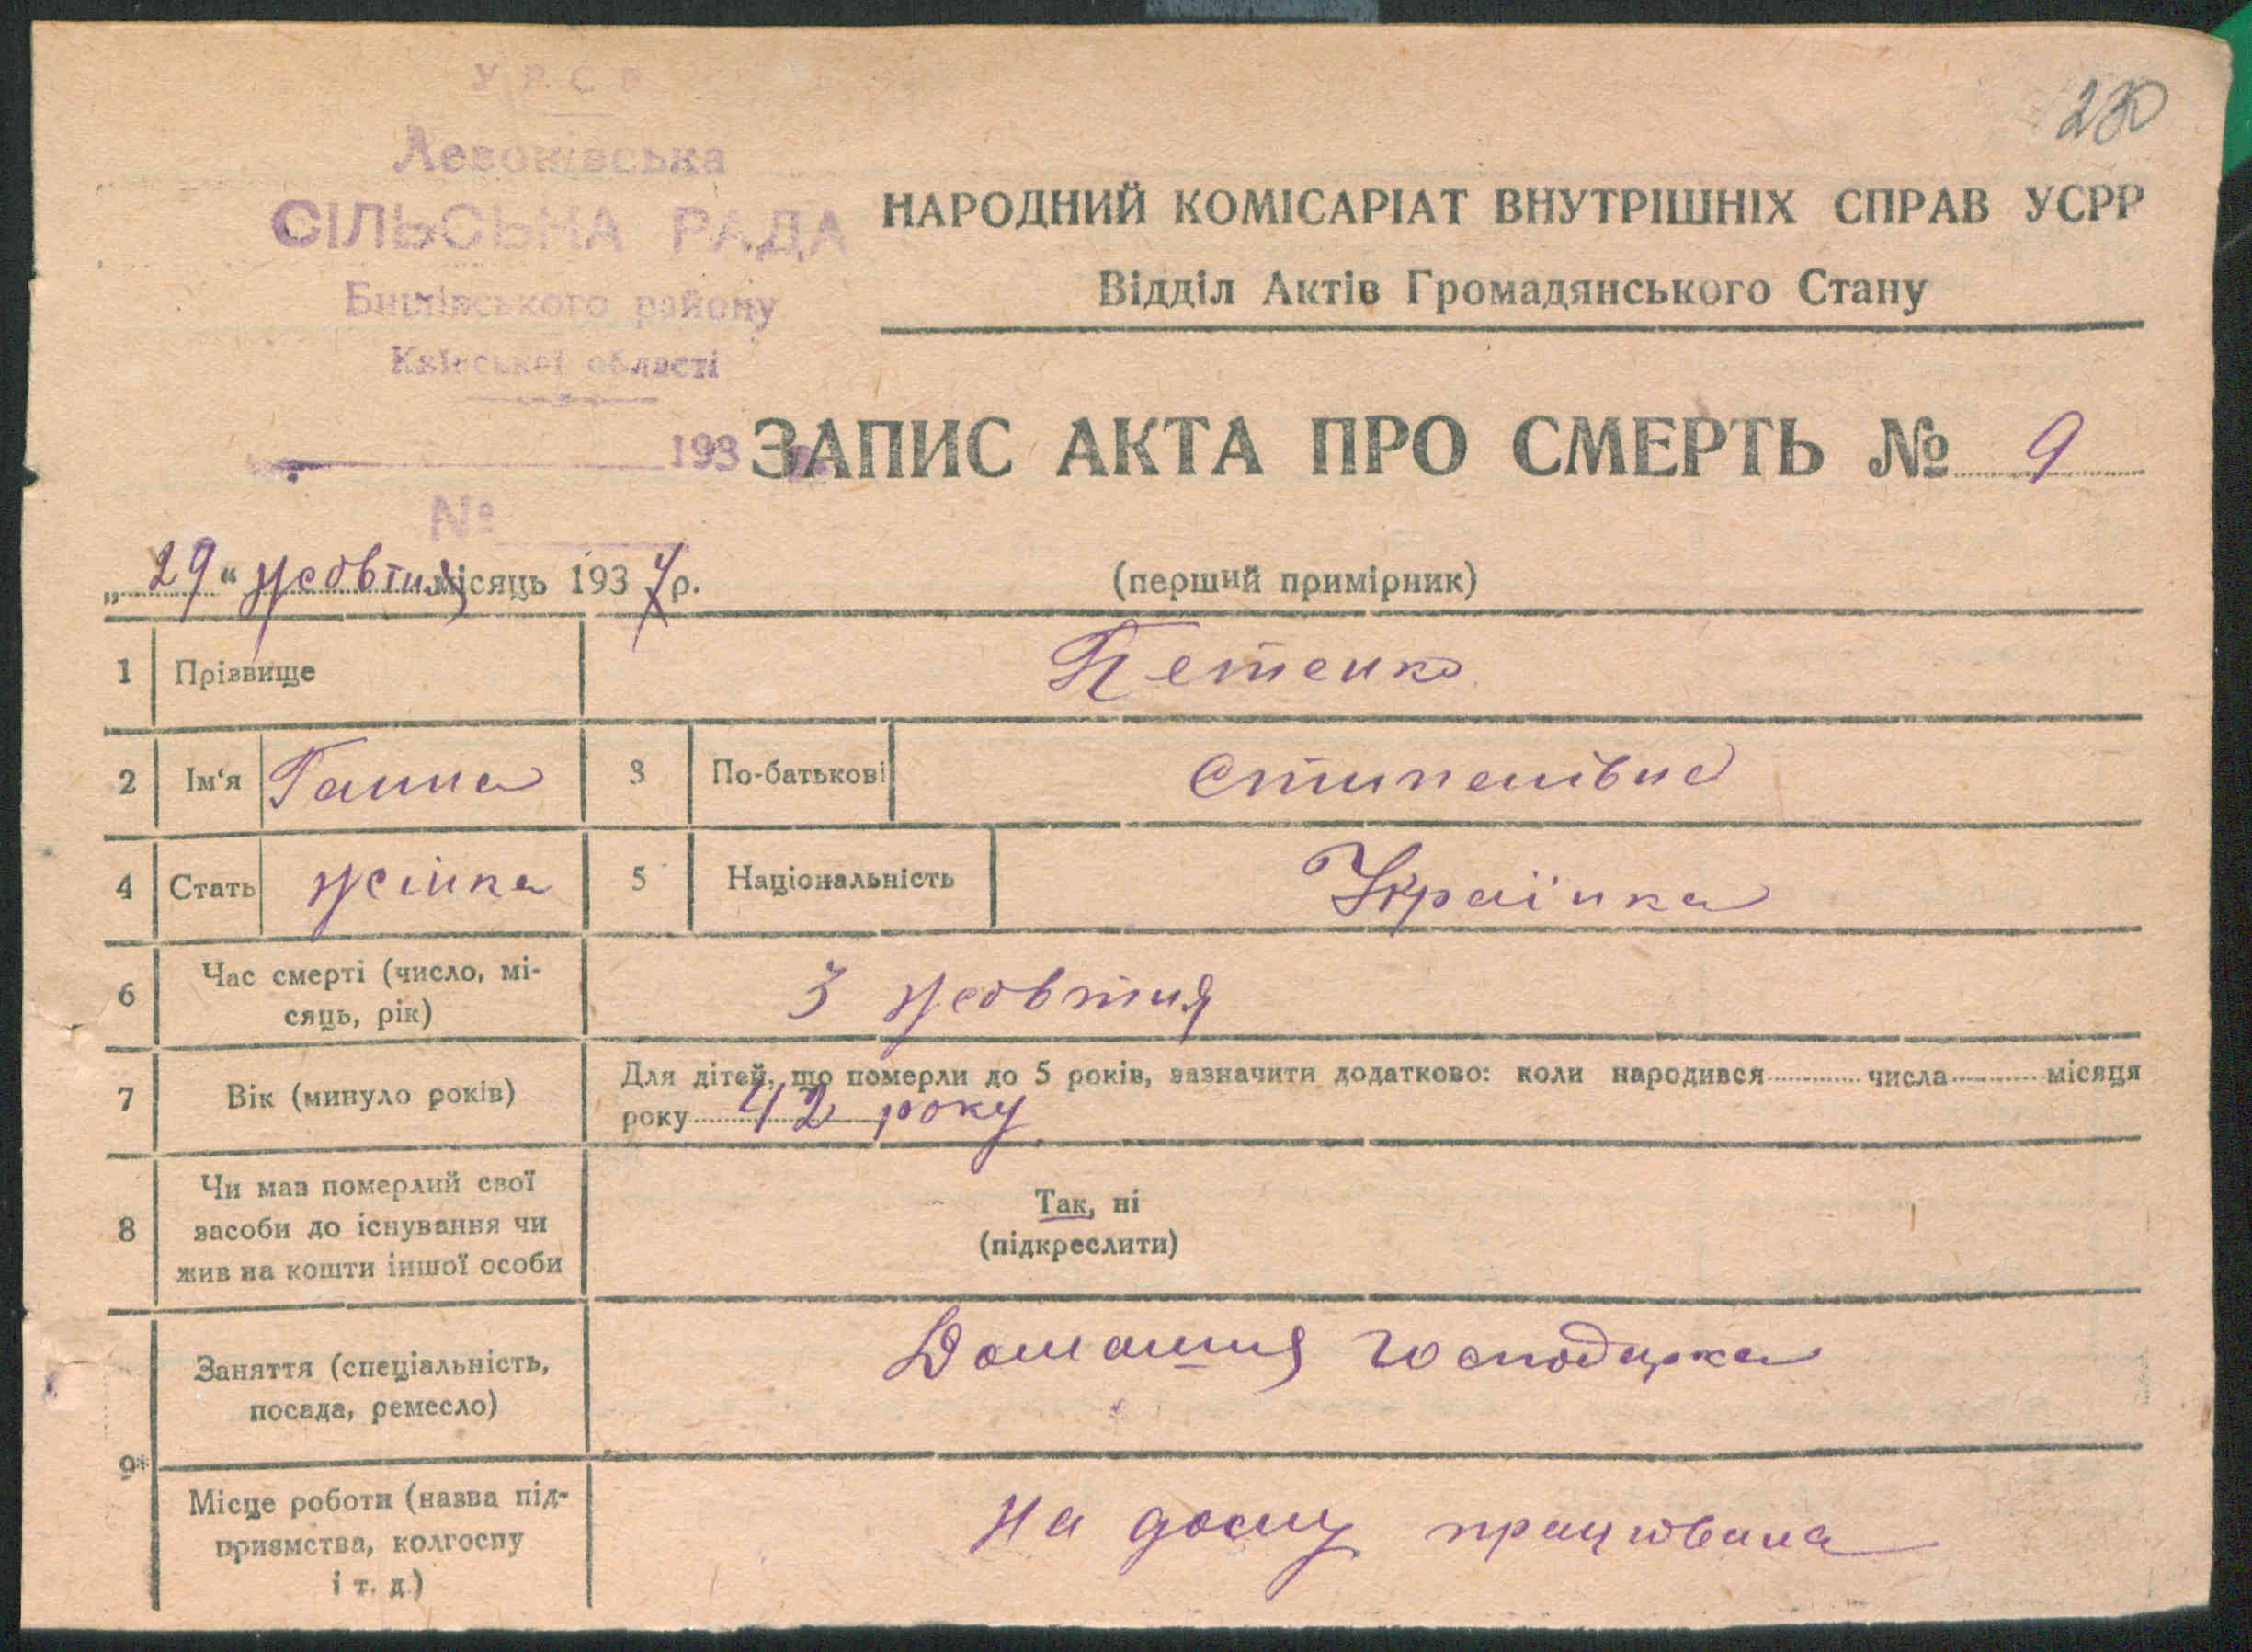 У Р С Р
230
Левонівська
СІЛЬСЬКА РАДА
НАРОДНИЙ КОМІСАРІАТ ВНУТРІШНІХ СПРАВ УСРР
Відділ Актів Громадянського Стану
району
Київської області
193
ЗАПИС АКТА ПРО СМЕРТЬ № 9
№
„29“ жовтня місяць 1937 р.
(перший примірник)
1 Прізвище Петенко
2 Ім'я Ганна 3 По-батькові Стипанівна
4 Стать жінка 5 Національність Українка
6 Час смерті (число, мі-
сяць, рік) 3 жовтня
7 Вік (минуло років) Для дітей, що померли до 5 років, зазначити додатково: коли народився числа місяця
року 42 року
8 Чи мав померлий свої
засоби до існування чи
жив на кошти іншої особи
Так, ні
(підкреслити)
9* Заняття (спеціальність,
посада, ремесло) Домашня господарка
Місце роботи (назва під-
приємства, колгоспу
і т. д.) На дому працювала